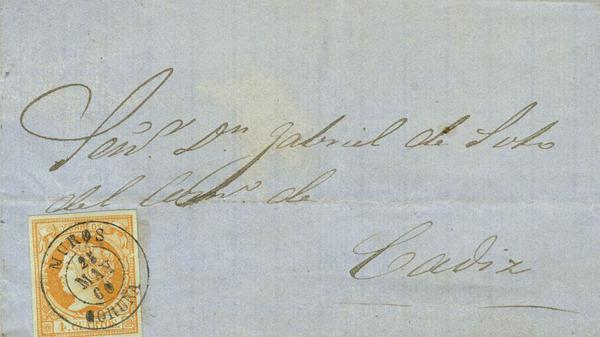 Señ.r D.n Gabriel de Soto
del Com.o de
Cadiz
MUROS
25
MAY
60
CORUÑA
4 CUARTOS